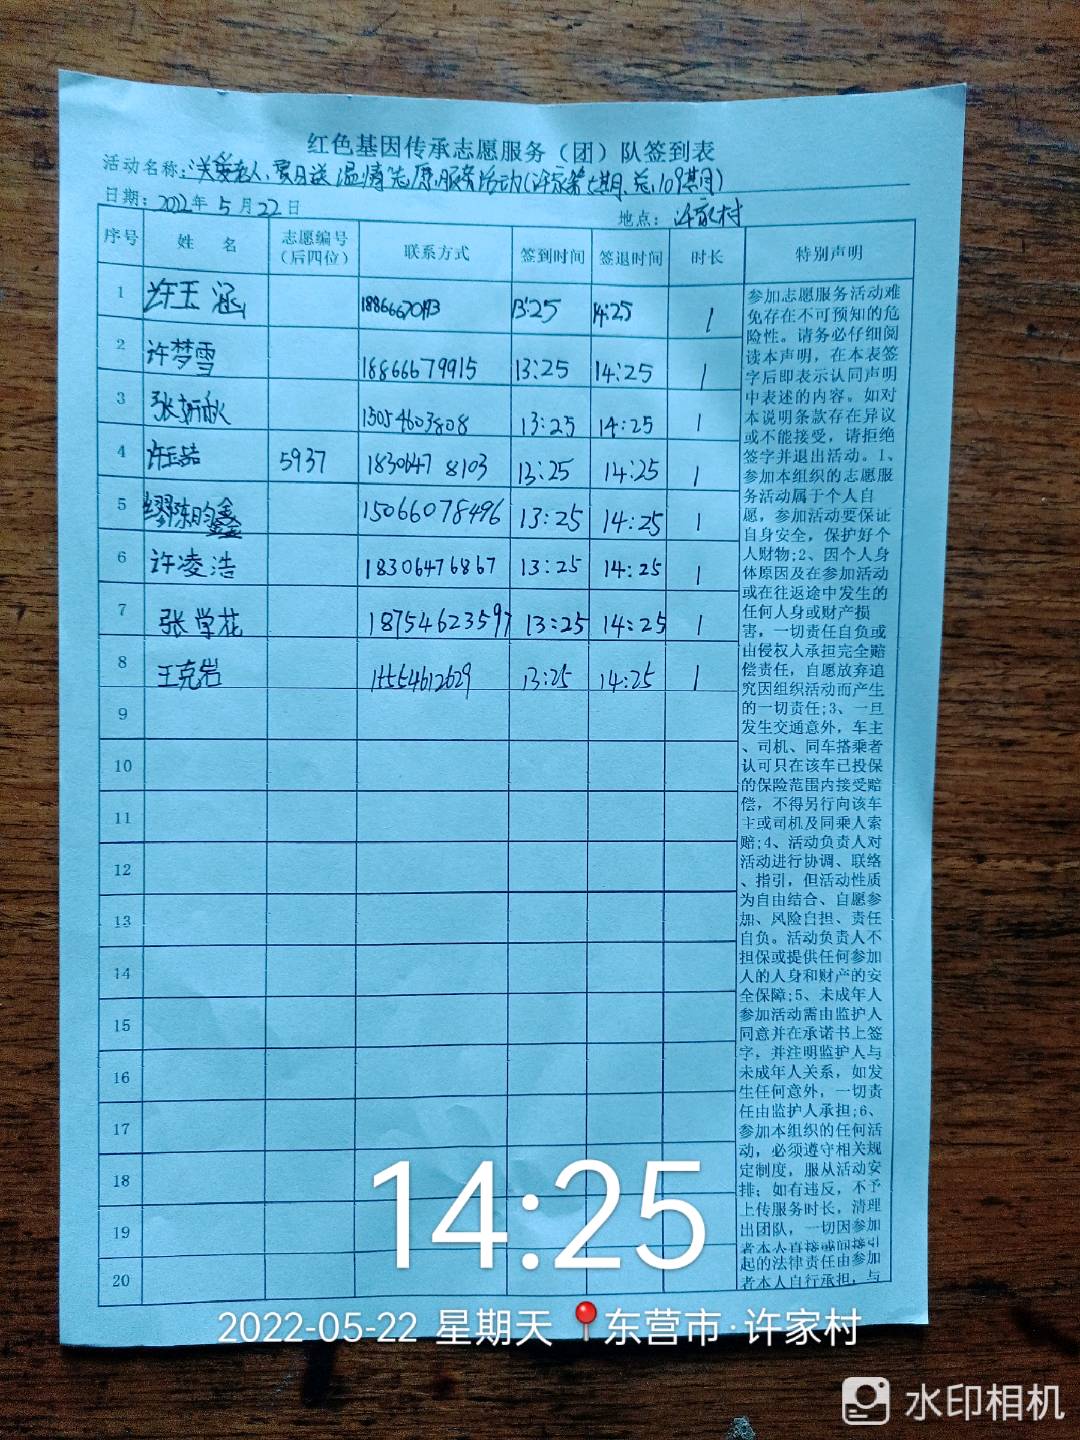 红色基因传承志愿服务（团）队签到表
活动名称: 关爱老人、夏日送温情志愿服务活动(许家第七期、总109期)
日期: 2022年5月22日 地点: 许家村
序号 姓 名 志愿编号（后四位） 联系方式 签到时间 签退时间 时长 特别声明
1 许玉涵 13:25 14:25 1
2 许梦雪 18866679915 13:25 14:25 1
3 张妍秋 13054603808 13:25 14:25 1
4 许玉喆 5937 18306478103 13:25 14:25 1
5 缪陈昀鑫 15066078496 13:25 14:25 1
6 许凌浩 18306476867 13:25 14:25 1
7 张学花 18754623597 13:25 14:25 1
8 王克岩 15554612629 13:25 14:25 1
9
10
11
12
13
14
15
16
17
18
19
20
参加志愿服务活动难
免存在不可预知的危
险性。请务必仔细阅
读本声明，在本表签
字后即表示认同声明
中表述的内容。如对
本说明条款存在异议
或不能接受，请拒绝
签字并退出活动。1、
参加本组织的志愿服
务活动属于个人自
愿，参加活动要保证
自身安全，保护好个
人财物;2、因个人身
体原因及在参加活动
或在往返途中发生的
任何人身或财产损
害，一切责任自负或
由侵权人承担完全赔
偿责任，自愿放弃追
究因组织活动而产生
的一切责任;3、一旦
发生交通意外，车主
、司机、同车搭乘者
认可只在该车已投保
的保险范围内接受赔
偿，不得另行向该车
主或司机及同乘人索
赔;4、活动负责人对
活动进行协调、联络
、指引，但活动性质
为自由结合、自愿参
加、风险自担、责任
自负。活动负责人不
担保或提供任何参加
人的人身和财产的安
全保障;5、未成年人
参加活动需由监护人
同意并在承诺书上签
字，并注明监护人与
未成年人关系，如发
生任何意外，一切责
任由监护人承担;6、
参加本组织的任何活
动，必须遵守相关规
定制度，服从活动安
排；如有违反，不予
上传服务时长，清理
出团队，一切因参加
者本人直接或间接引
起的法律责任由参加
者本人自行承担，与
14:25
2022-05-22 星期天 东营市·许家村
水印相机